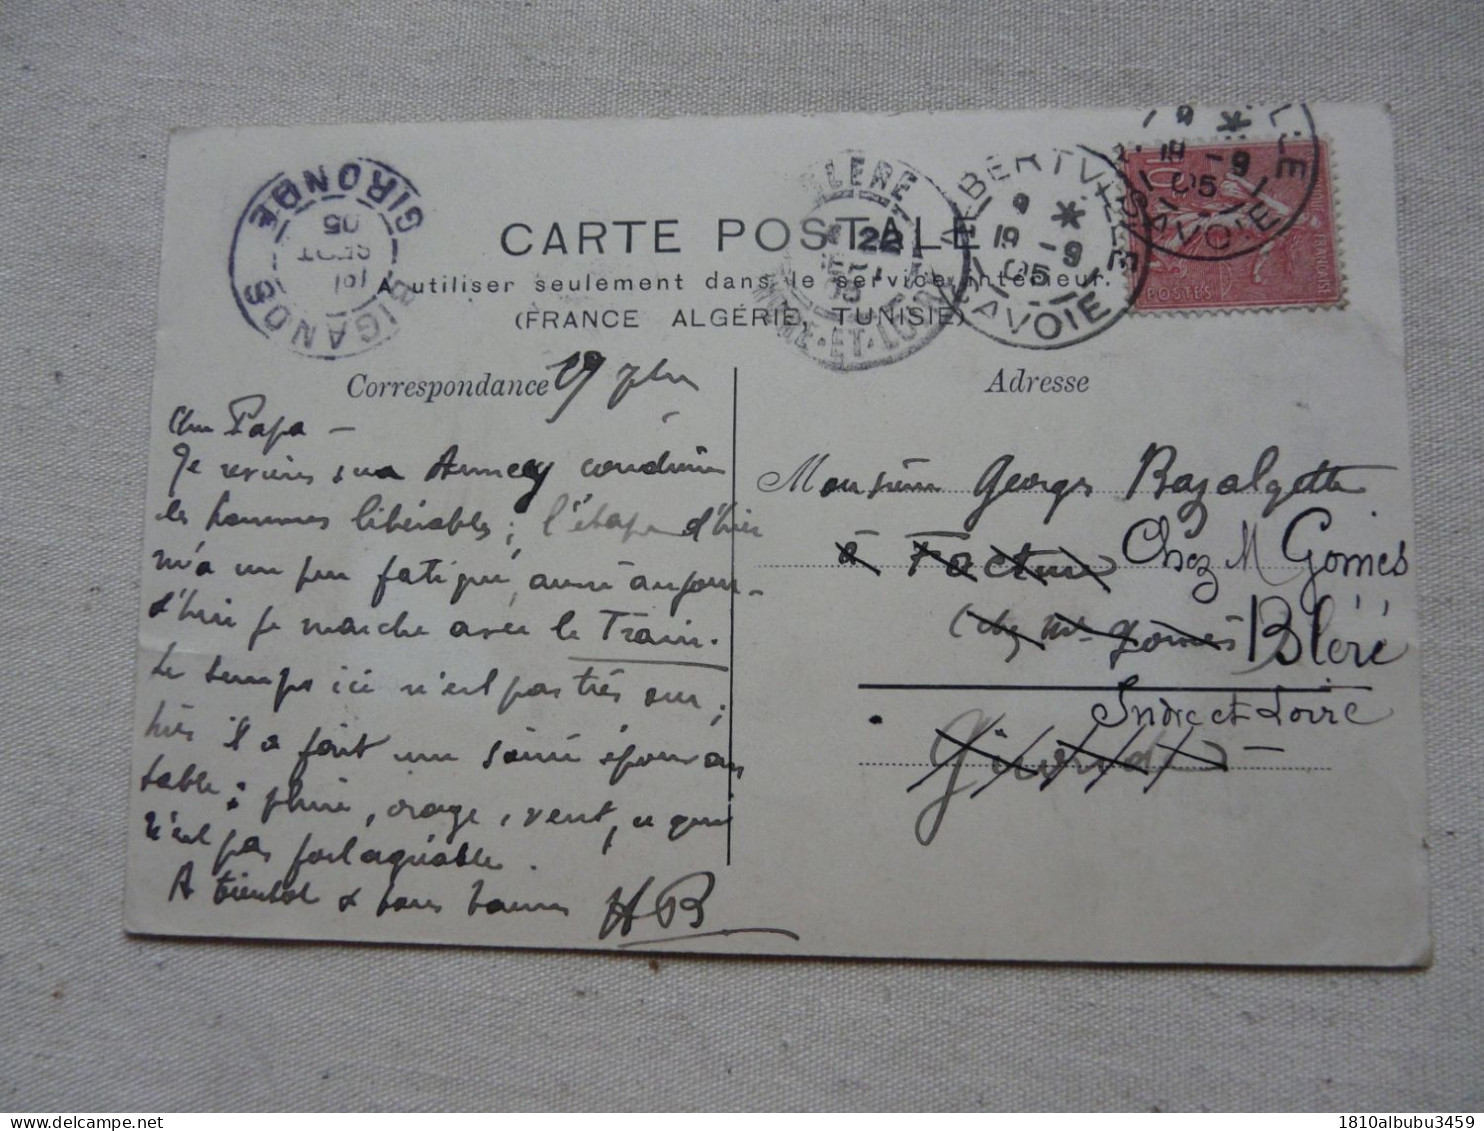 CARTE POSTALE
A utiliser seulement dans le service intérieur.
(FRANCE ALGÉRIE, TUNISIE)
BIGANOS
GIRONDE
SEPT
05
BLERE
22
INDRE-ET-LOIRE
ALBERTVILLE
9 *
19 -9
05
SAVOIE
9 *
19 -9
05
SAVOIE
10
POSTES
Correspondance
19 7bre
Cher Papa —
Je reviens sur Annecy conduire
les hommes libérables ; l'étape d'hier
m'a un peu fatigué, aussi aujour-
d'hui je marche avec le Train.
Le temps ici n'est pas très sur ;
hier il a fait une soirée épouvan
table : pluie, orage, vent, ce qui
n'est pas fort agréable.
A bientôt & bons baisers HB
Adresse
Monsieur Georges Bazalgette
à Facture Chez M Gomès
(chez Mr Gomès Bléré
Indre et Loire
Gironde
1810albubu3459